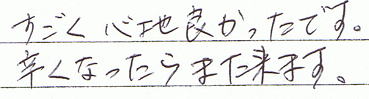 すごく心地良かったです。
辛くなったらまた来ます。